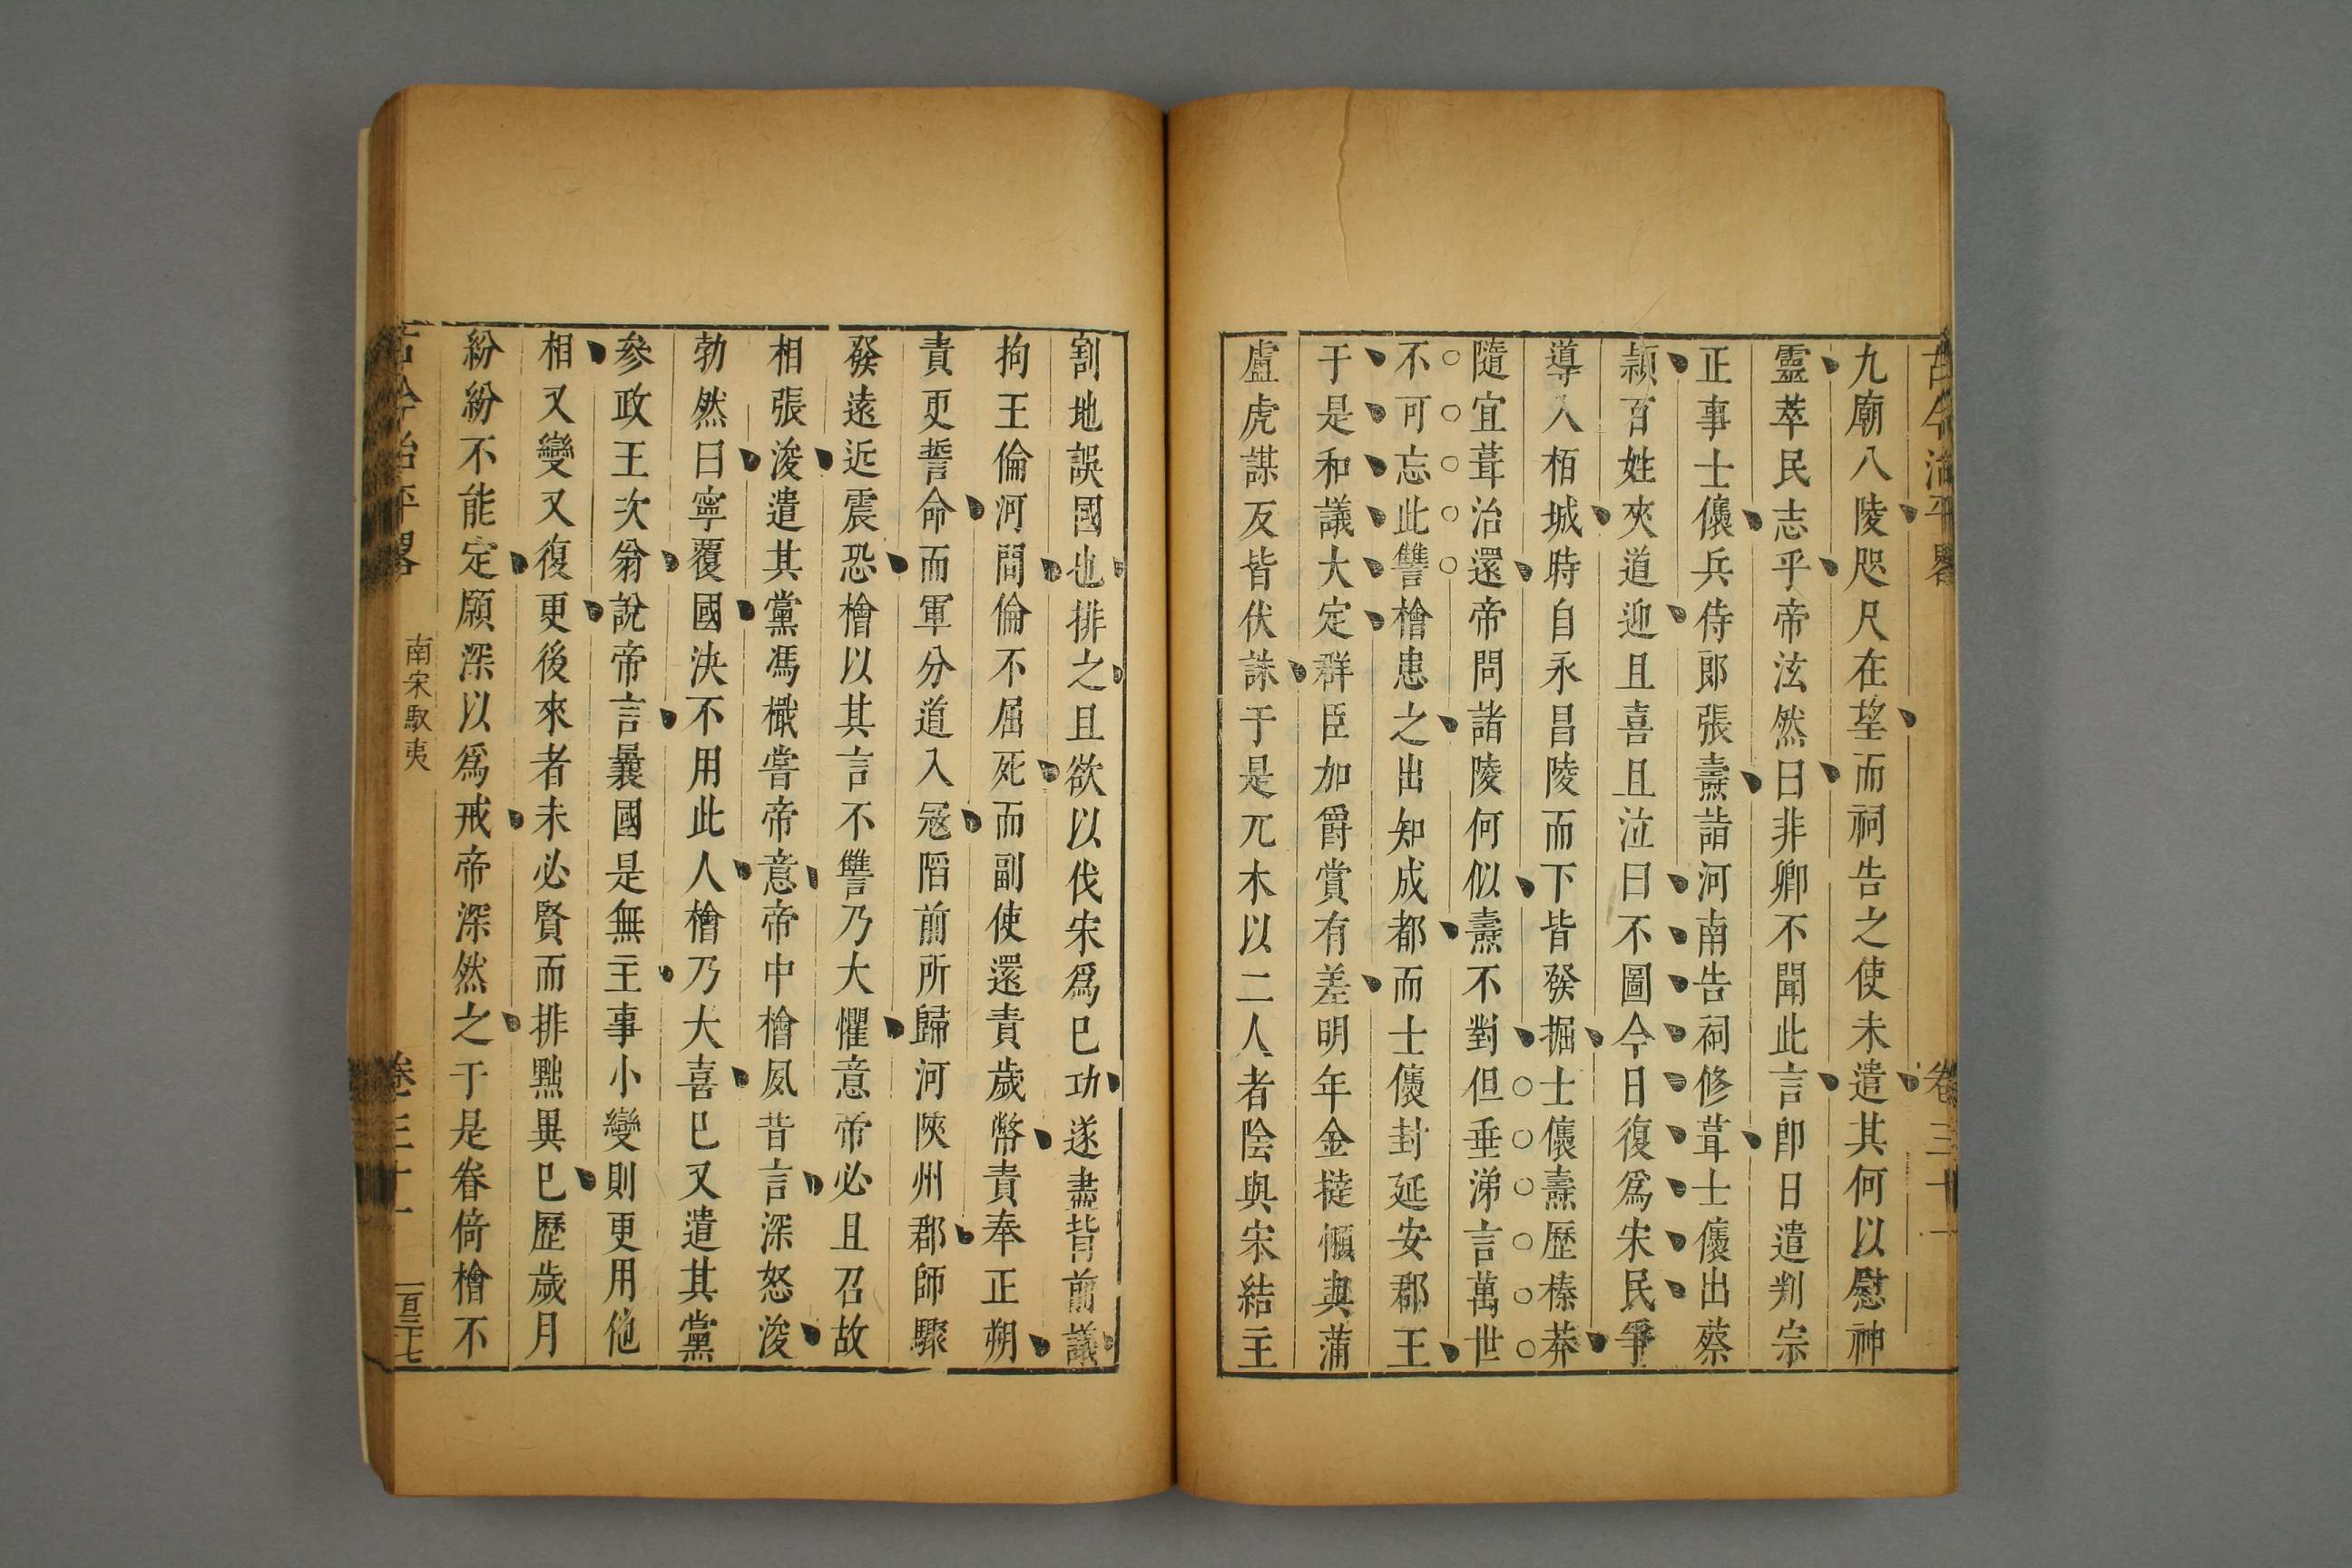 古今治平畧 卷三十一
九廟八陵咫尺在望而祠告之使未遣其何以慰神
靈萃民志乎帝泫然曰非卿不聞此言卽日遣判宗
正事士㒟兵侍郎張燾詣河南告祠修葺士㒟出蔡
潁百姓夾道迎且喜且泣曰不圖今日復爲宋民爭
導入栢城時自永昌陵而下皆發掘士㒟燾歷榛莽
隨宜葺治還帝問諸陵何似燾不對但垂涕言萬世
不可忘此讐檜患之出知成都而士㒟封延安郡王
于是和議大定群臣加爵賞有差明年金撻懶與蒲
盧虎謀反皆伏誅于是兀朮以二人者陰與宋結主
割地誤國也排之且欲以伐宋爲已功遂盡背前議
拘王倫河間倫不屈死而副使還責歲幣責奉正朔
責更誓命而軍分道入寇陷前所歸河陝州郡師驟
發遠近震恐檜以其言不讐乃大懼意帝必且召故
相張浚遣其黨馮檝嘗帝意帝中檜夙昔言深怒浚
勃然曰寧覆國決不用此人檜乃大喜已又遣其黨
參政王次翁說帝言曩國是無主事小變則更用他
相又變又復更後來者未必賢而排黜異已歷歲月
紛紛不能定願深以爲戒帝深然之于是眷倚檜不
古今治平畧 南宋馭夷 卷三十一 一百三十七